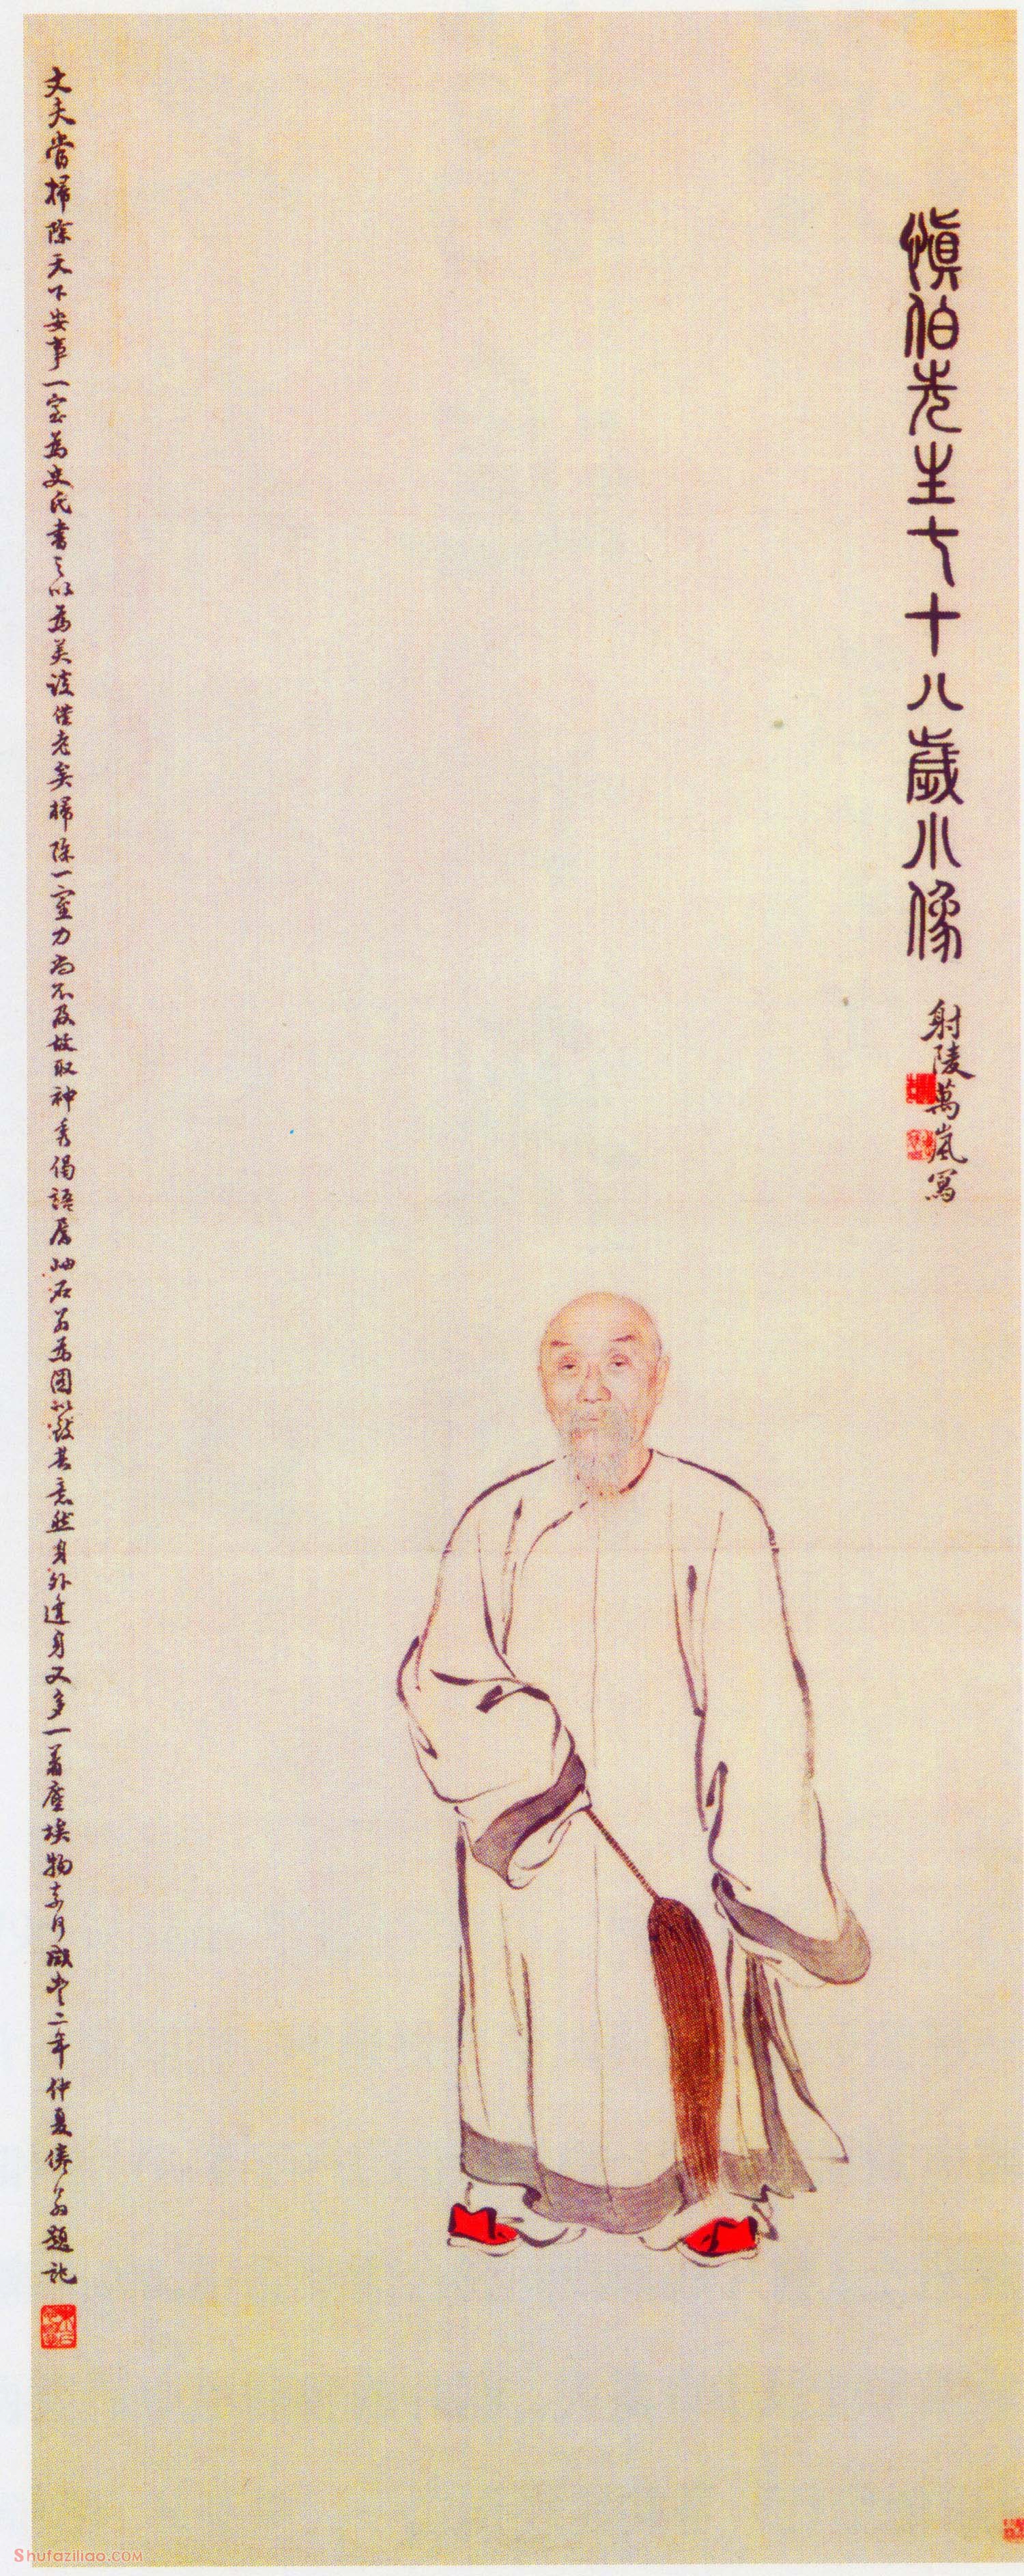 慎伯先生七十八歲小像
射陵萬嵐寫
丈夫當掃除天下安事一室為史氏書之以為美談僕老矣掃除一室力尚不及故取神秀偈語屬岫石翁為圖以戲其意然身外違身又多一著塵埃物素月咸豐二年仲夏倦翁題記
Shufaziliao.COM